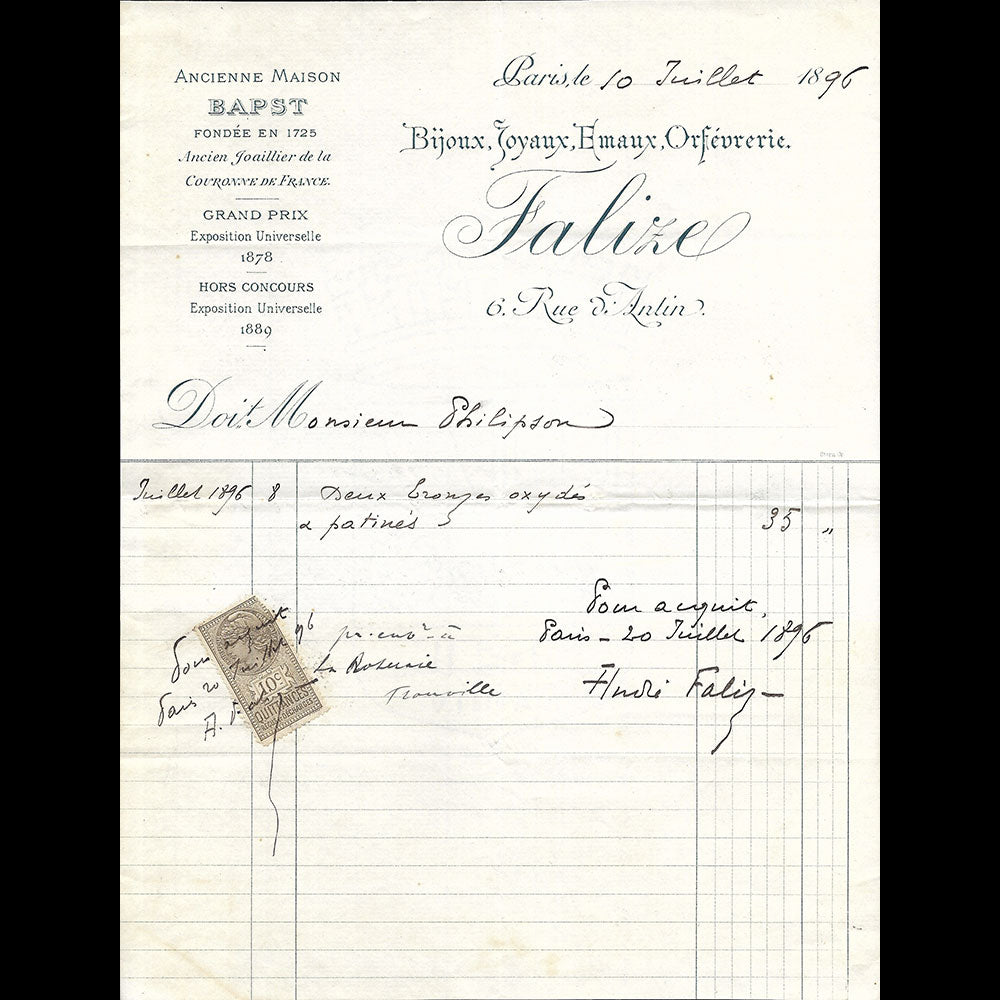 ANCIENNE MAISON
BAPST
FONDÉE EN 1725
Ancien Joaillier de la
COURONNE DE FRANCE.
GRAND PRIX
Exposition Universelle
1878
HORS CONCOURS
Exposition Universelle
1889
Paris, le 10 Juillet 1896
Bijoux, Joyaux, Emaux, Orfévrerie.
Falize
6. Rue d'Antin.
Doit Monsieur Philipson
Juillet 1896 8 Deux bronzes oxydés
& patinés 35 "
Pour acquit,
Paris - 20 Juillet 1896
André Falize
à
La
Trouville
Pour acquit
Paris 20 Juillet 96
A. Falize